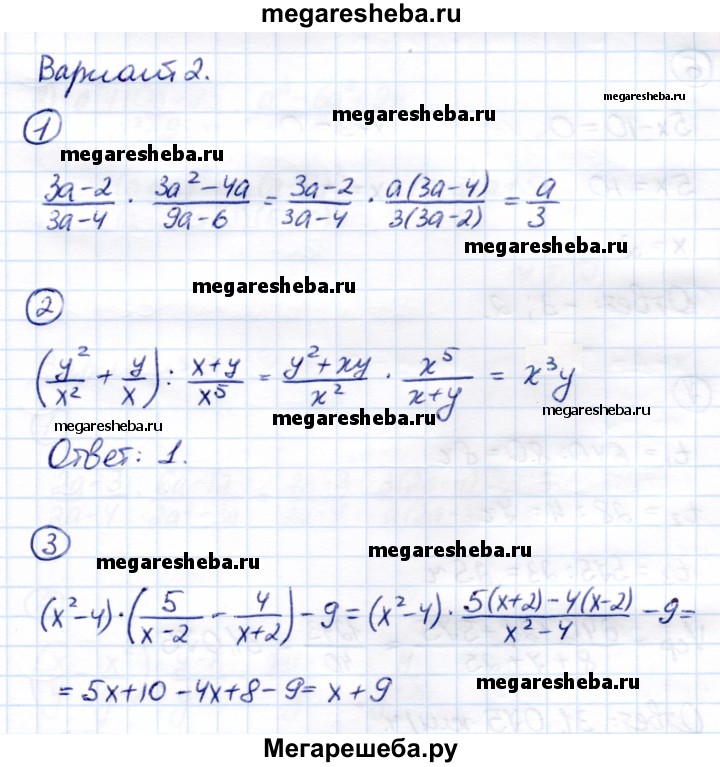 megaresheba.ru
Вариант 2.
megaresheba.ru
megaresheba.ru
1
megaresheba.ru
(3a-2)/(3a-4) · (3a²-4a)/(9a-6) = (3a-2)/(3a-4) · a(3a-4)/3(3a-2) = a/3
megaresheba.ru
megaresheba.ru
2
(y²/x² + y/x) : (x+y)/x⁵ = (y²+xy)/x² · x⁵/(x+y) = x³y
megaresheba.ru
megaresheba.ru
megaresheba.ru
Ответ: 1.
3
megaresheba.ru
megaresheba.ru
(x²-4)·(5/(x-2) - 4/(x+2)) - 9 = (x²-4) · (5(x+2)-4(x-2))/(x²-4) - 9 =
= 5x+10-4x+8-9= x+9
megaresheba.ru
Мегарешеба.ру